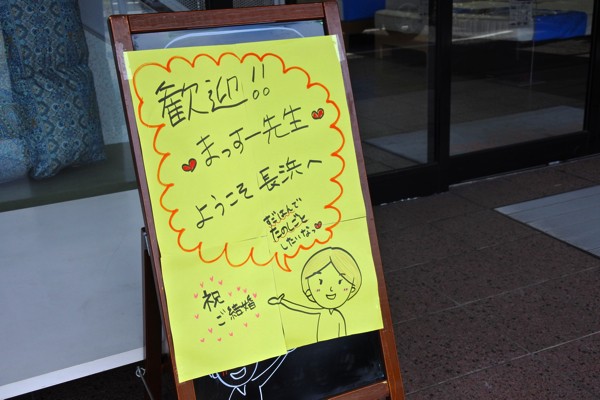 歓迎!!
まっすー先生
ようこそ 長浜へ
たのしごと
したいなっ
祝
ご結婚